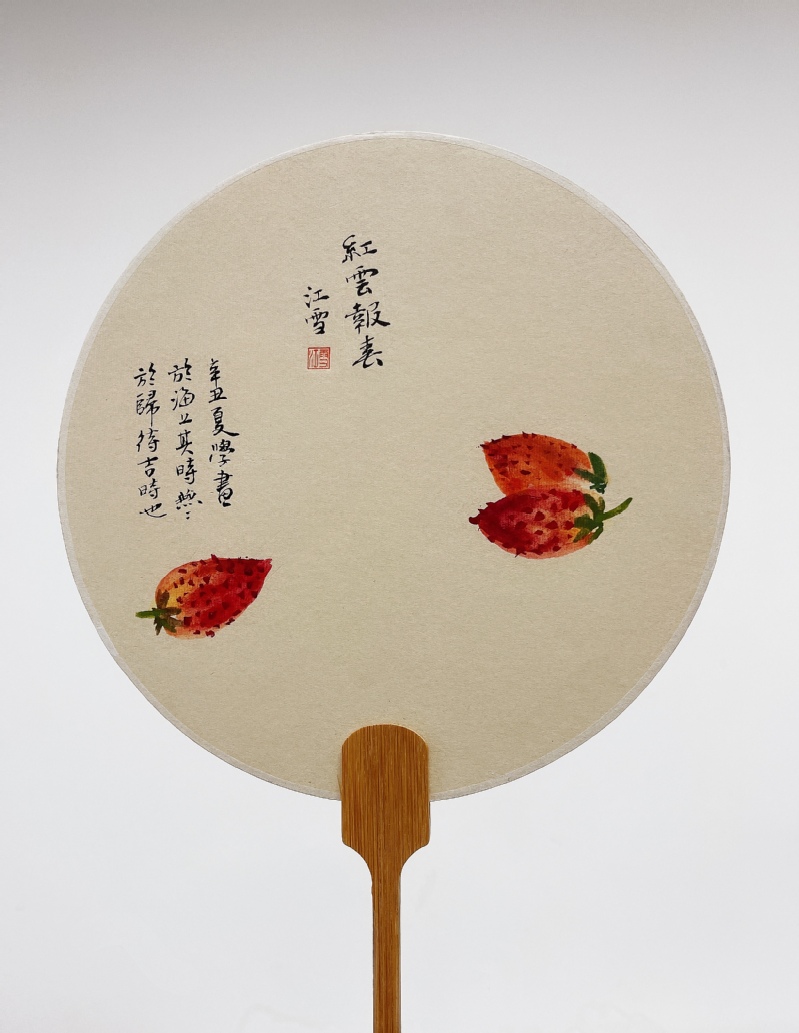 紅雲報春
江雪
辛丑夏學畫
於滬上其時無
於歸待吉時也